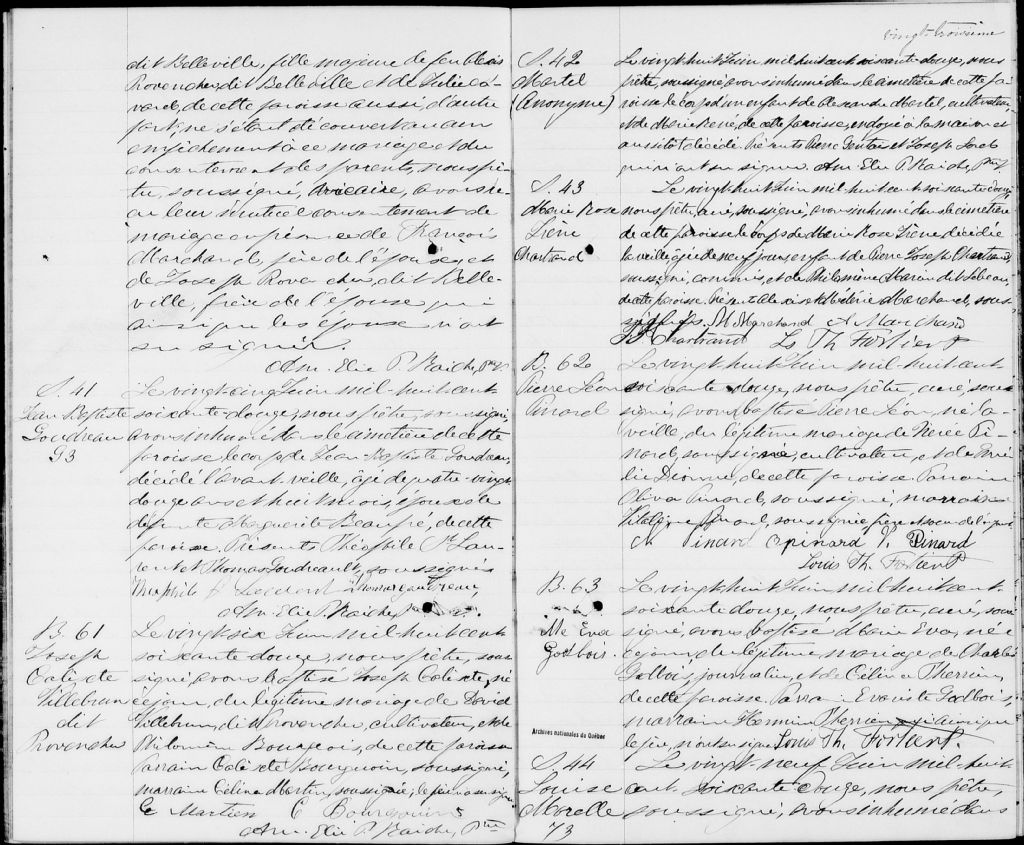 dit Belleville, fille majeure de feu
Provencher dit Belleville et de Julie
de cette paroisse aussi, d'autre
part, ne s'étant découvert aucun
empêchement à ce mariage et du
consentement des parents, nous prê-
tre, soussigné, vicaire, avons re-
çu leur mutuel consentement de
mariage en présence de François
Marchand, père de l'époux, et
de Joseph Provencher, dit Belle-
ville, frère de l'épouse qui
ainsi que les époux n'ont
su signer.
Am. Elie P. Raiche, Ptre
S. 41
Jean Baptiste
Goudreau
93
Le vingt cinq Juin mil-huit cent
soixante douze, nous prêtre, soussigné,
avons inhumé dans le cimetière de cette
paroisse le corps de Jean Baptiste Goudreau,
décédé l'avant veille, âgé de quatre vingt
douze ans et huit mois, époux de
défunte Marguerite Beaupré, de cette
paroisse. Présents Théophile St. Lau-
rent et Thomas Goudreault, soussignés
Théophile
Am. Elie P. Raiche, Ptre
B. 61
Joseph
Calixte
Villebrun
dit
Provencher
Le vingt six Juin mil-huit cent
soixante douze, nous prêtre, sous-
signé, avons baptisé Joseph Calixte, né
ce jour, du légitime mariage de David
Villebrun, dit Provencher, cultivateur, et de
Philomène Bourgeois, de cette paroisse
Parrain Calixte Bourgouin, soussigné,
marraine Célina Martin, soussignée; le père a su signer
C Martin C Bourgouin
Am. Elie P. Raiche, Ptre
vingt-troisième
S. 42
Martel
(Anonyme)
Le vingt huit Juin mil huit cent soixante douze, nous
prêtre, soussigné, avons inhumé dans le cimetière de cette pa-
roisse le corps d'un enfant de Alexandre Martel, cultivateur,
et de Marie René, de cette paroisse, ondoyé à la maison et
aussitôt décédé. Présents Pierre et Joseph
qui n'ont su signer. Am Elie P. Raiche, Ptre
S. 43
Marie Rose
Irène
Chartrand
Le vingt huit Juin mil huit cent soixante douze,
nous prêtre, curé, soussigné, avons inhumé dans le cimetière
de cette paroisse le corps de Marie Rose Irène, décédée
la veille, âgée de neuf jours, enfant de Pierre Joseph Chartrand
soussigné, commis, et de Philomène Morin dit
de cette paroisse. Présents et Médéric Marchand, sous-
signés. M Marchand A Marchand
Chartrand Ls Th Fortier P
B. 62
Pierre Léon
Pinard
Le vingt huit Juin mil-huit cent
soixante douze, nous prêtre, curé, sous-
signé, avons baptisé Pierre Léon, né la
veille, du légitime mariage de Nérée Pi-
nard, soussigné, cultivateur, et de Emé-
lie Dionne, de cette paroisse Parrain
Oliva Pinard, soussigné, marraine
Pinard, soussignée, frère et soeur de l'enfant
N Pinard O pinard V. Pinard
Louis Th. Fortier P
B. 63
Me Eva
Godbois.
Le vingt huit Juin mil huit cent
soixante douze, nous prêtre, curé, sous-
signé, avons baptisé Marie Eva, née
ce jour, du légitime mariage de Charles
Godbois, journalier, et de Célina Therrien
de cette paroisse. Parrain Evariste Godbois,
marraine Hermine Therrien qui ainsi que
le père, n'ont su signer. Louis Th. Fortier P.
Archives nationales du Québec
S. 44
Louise
Morelle
73
Le vingt neuf Juin mil huit
cent soixante douze, nous prêtre,
soussigné, avons inhumé dans